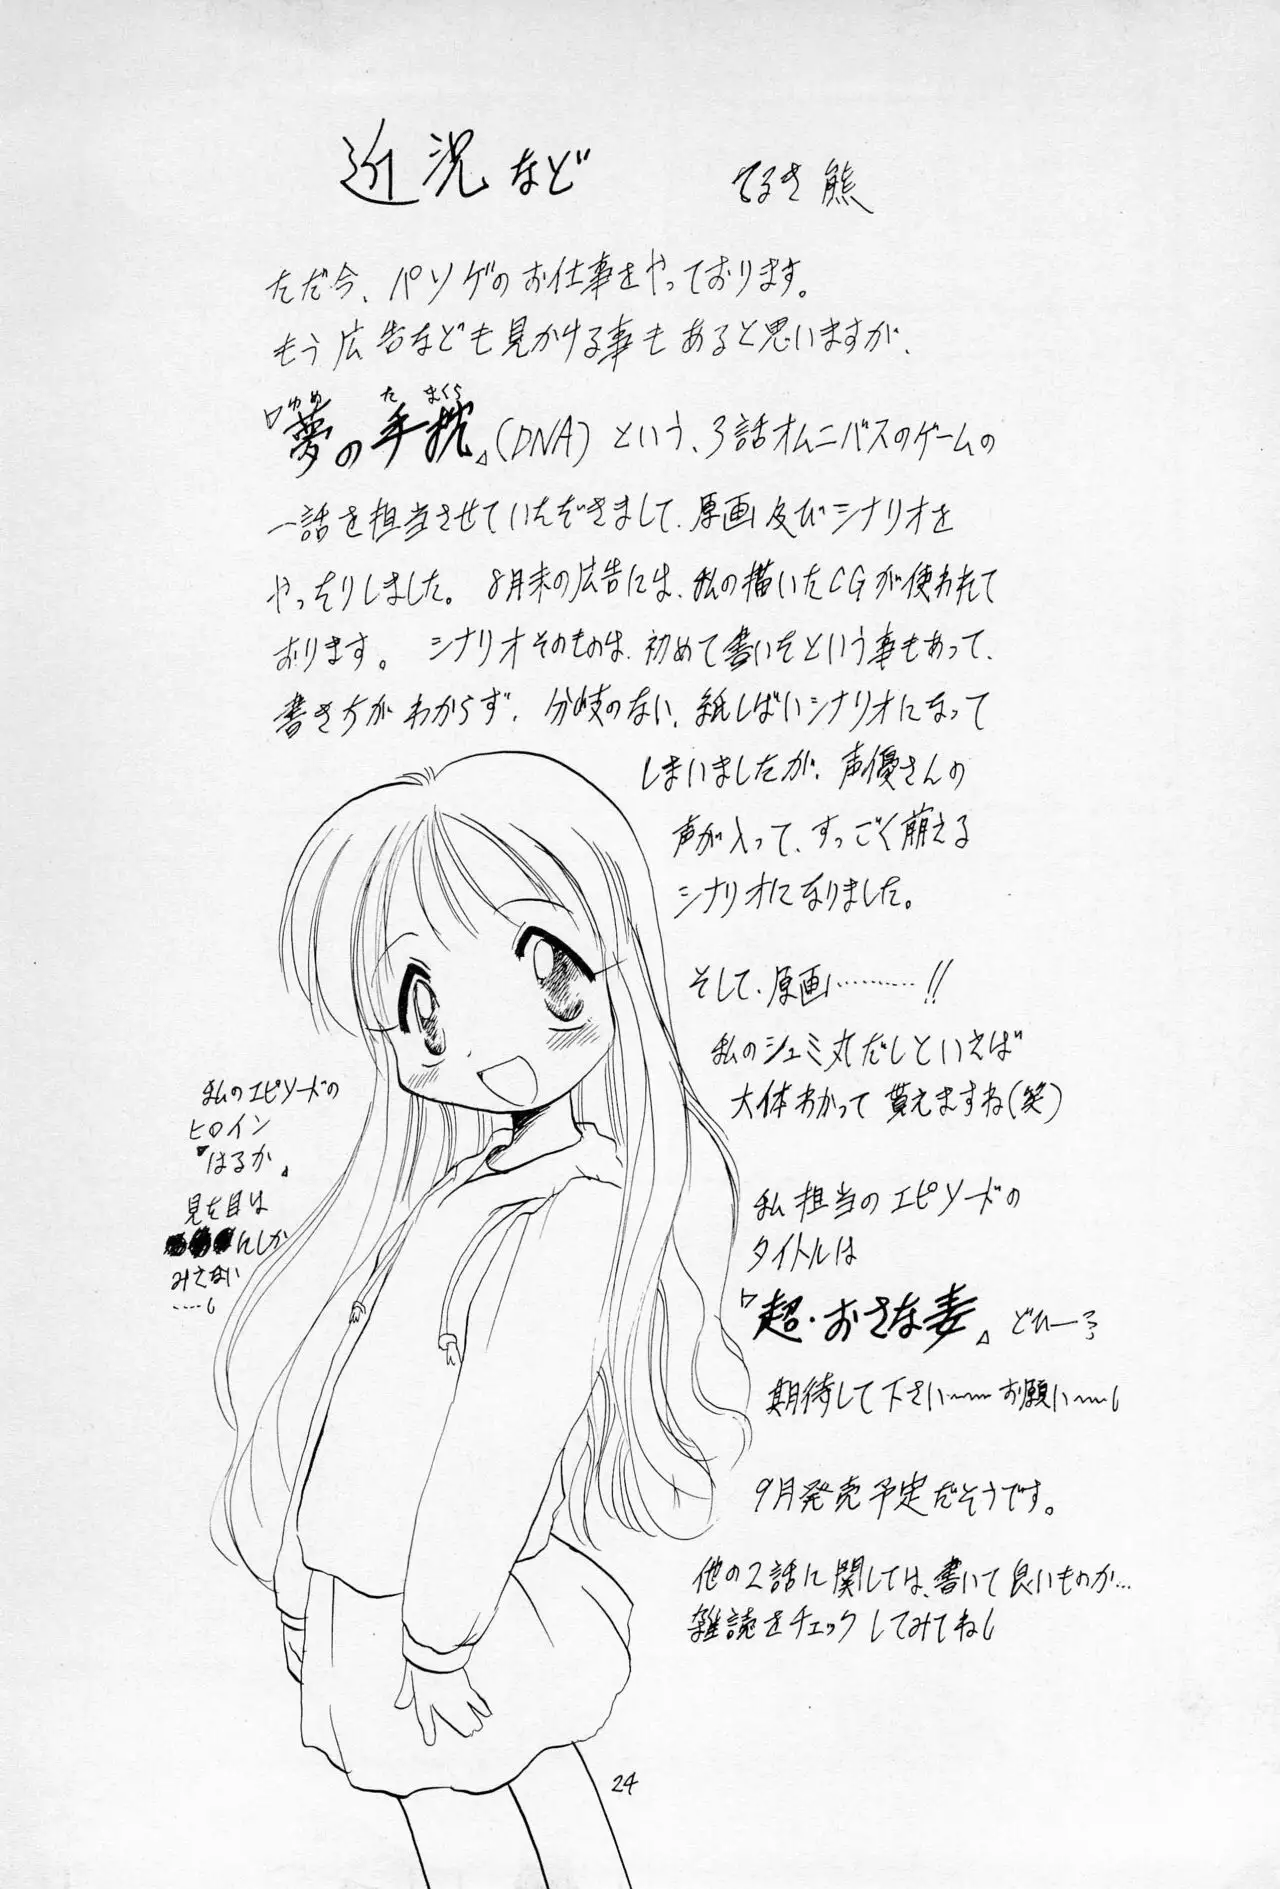 近況など
てるき熊
ただ今、パソゲのお仕事をやっております。
もう広告なども見かける事もあると思いますが、
ゆめ た まくら
『夢の手枕』(DNA)という、3話オムニバスのゲームの
一話を担当させていただきまして、原画及びシナリオを
やったりしました。8月末の広告には、私の描いたCGが使われて
おります。シナリオそのものは、初めて書いたという事もあって、
書き方がわからず、分岐のない、紙しばいシナリオになって
しまいましたが、声優さんの
声が入って、すっごく萌える
シナリオになりました。
そして、原画………!!
私のシュミ丸だしといえば
大体わかって貰えますね(笑)
私のエピソードの
ヒロイン
『はるか』
見た目は
んしか
みえない
私担当のエピソードの
タイトルは
『超・おさな妻』どひーっ
期待して下さい〜〜お願い〜〜し
9月発売予定だそうです。
他の2話に関しては、書いて良いものか…
雑読をチェックしてみてねし
24